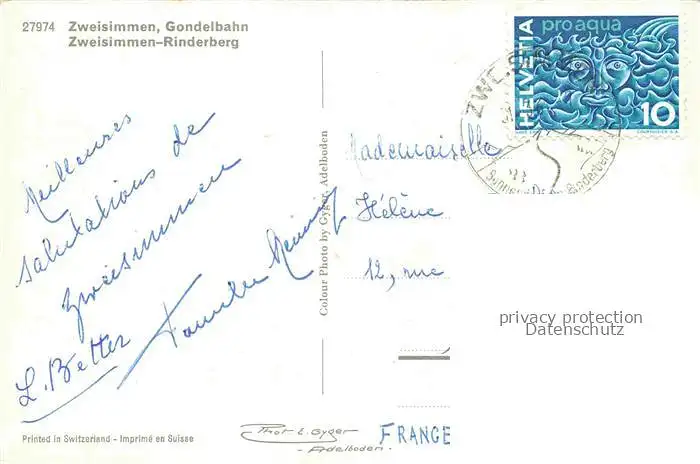 27974 Zweisimmen, Gondelbahn
Zweisimmen–Rinderberg
Meilleures
salutations de
Zweisimmen
Famille
L. Better
Colour Photo by Gyger, Adelboden
HELVETIA
pro aqua
10
COURVOISIER S.A.
ZWEISIMMEN
Rinderberg
Mademoiselle
Hélène
12, rue
FRANCE
privacy protection
Datenschutz
Printed in Switzerland - Imprimé en Suisse
Phot E. Gyger
- Adelboden -